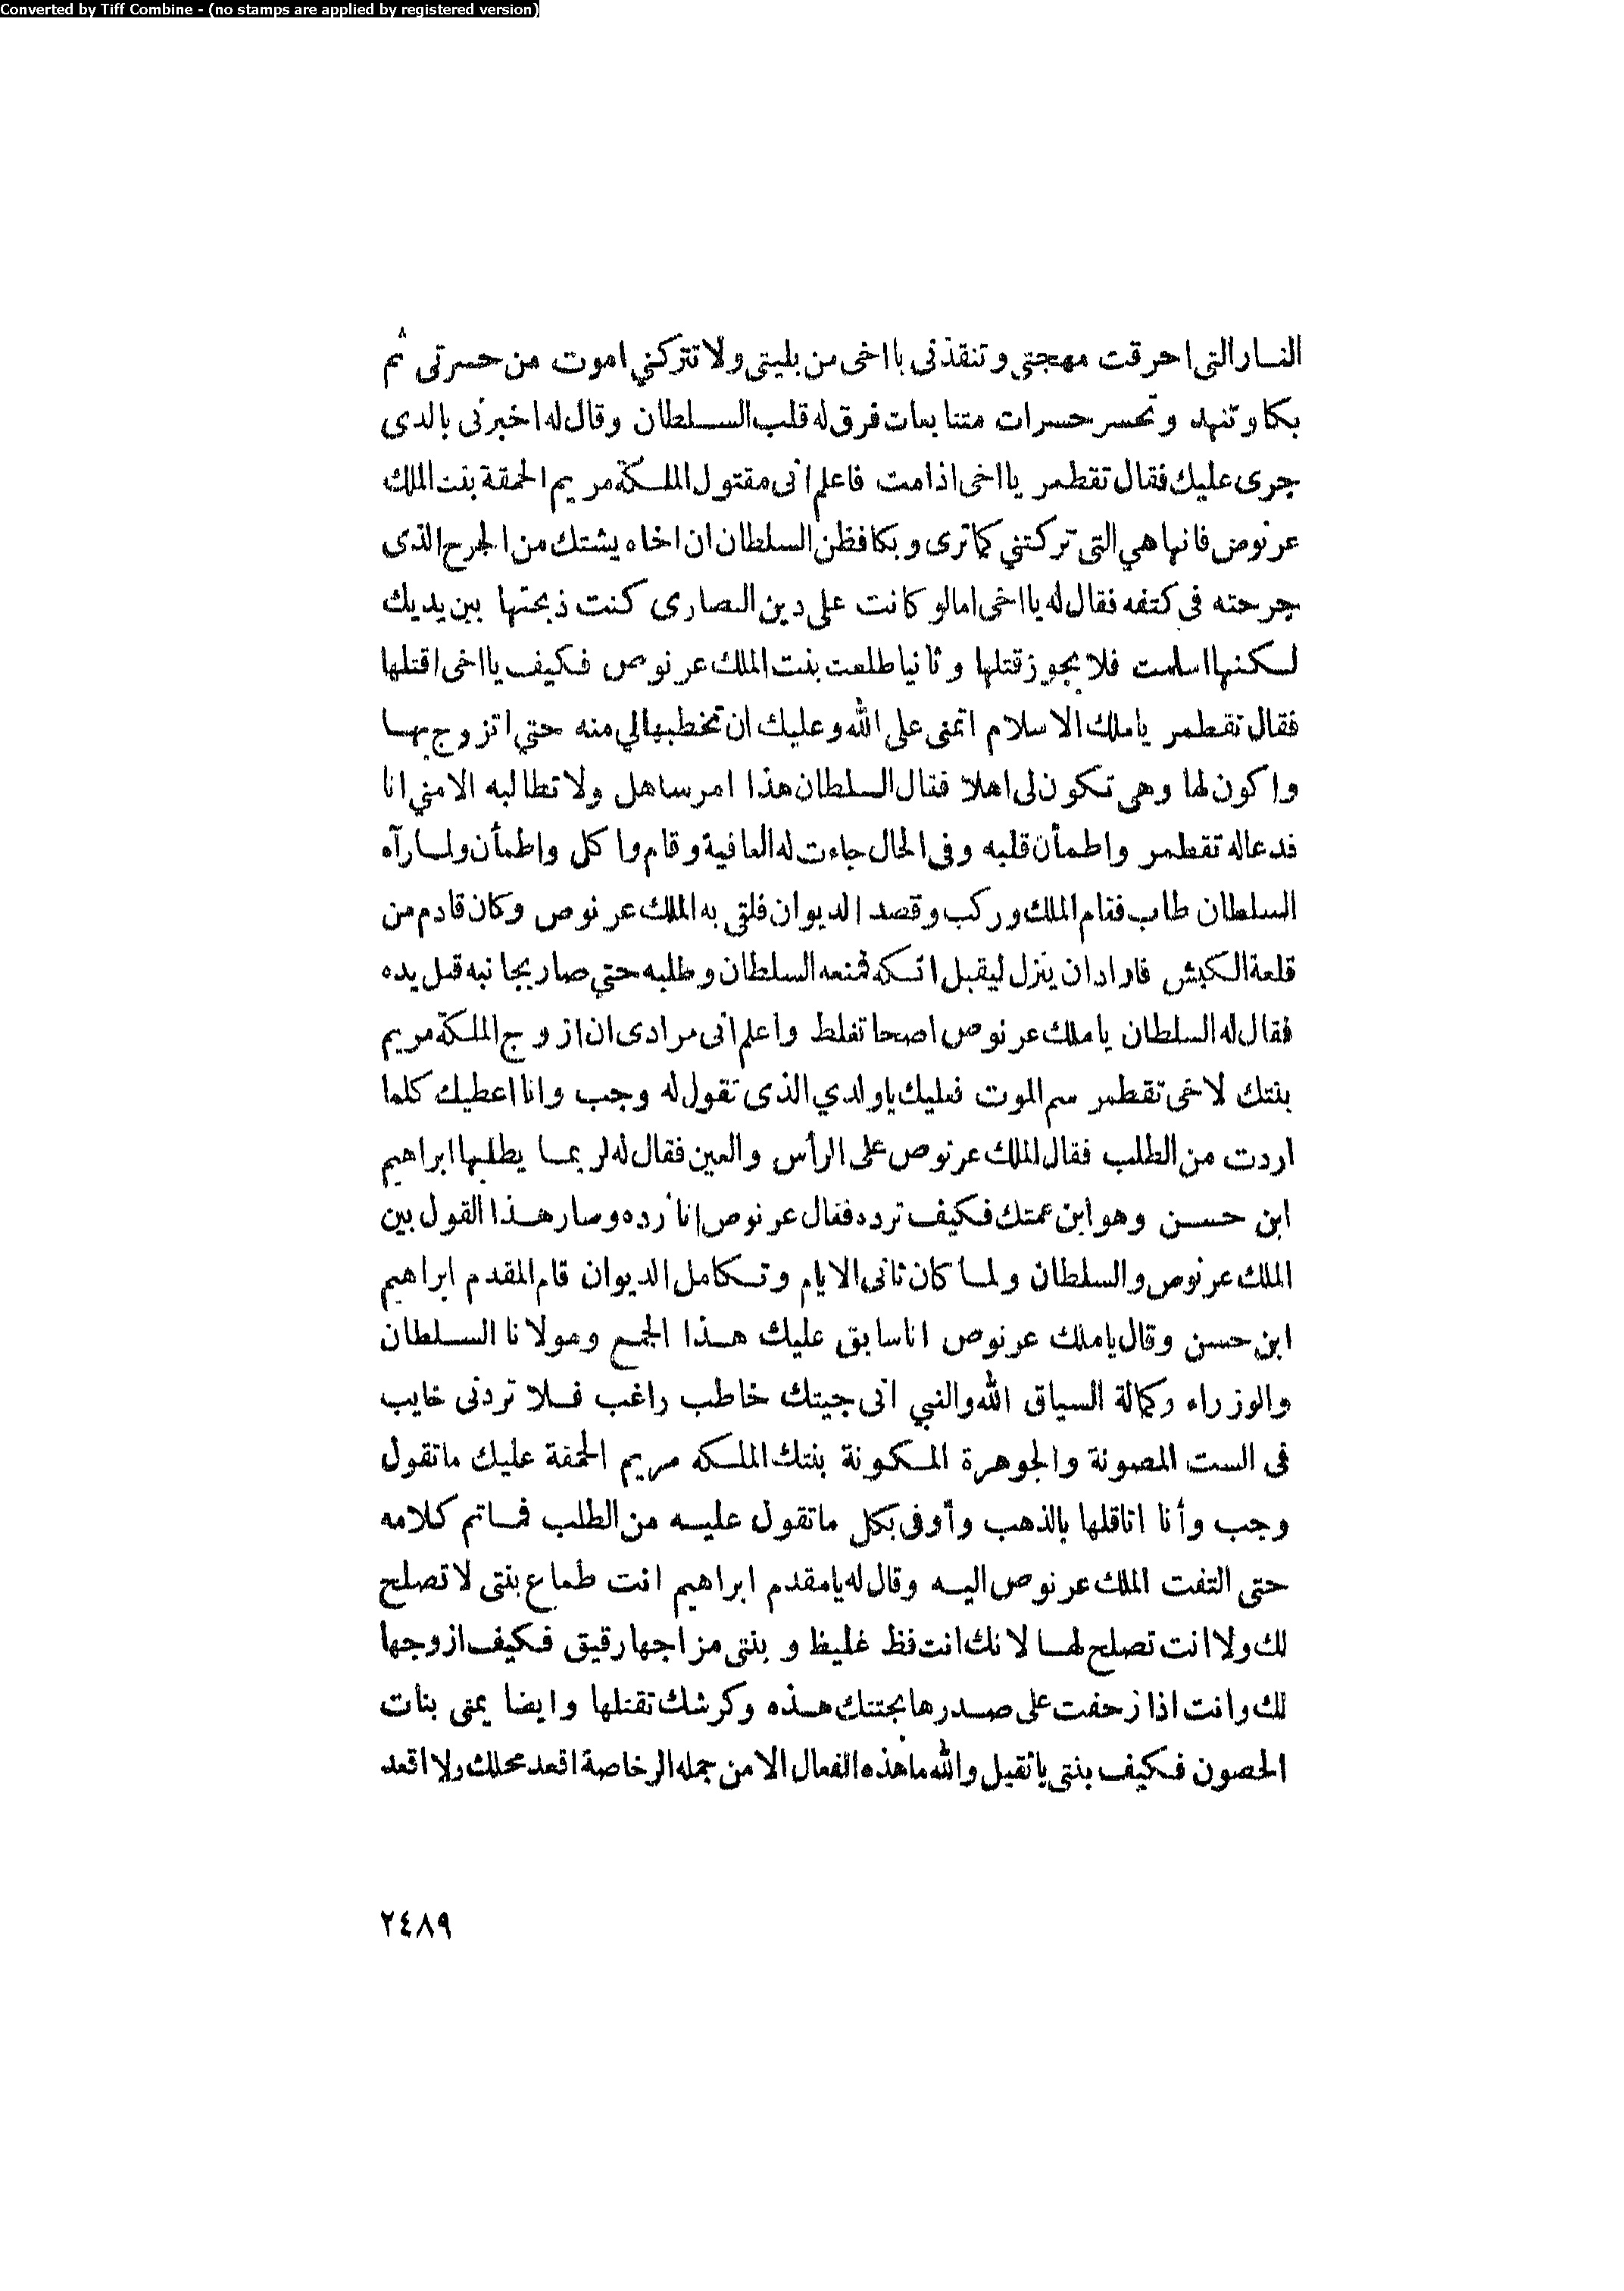 Converted by Tiff Combine - (no stamps are applied by registered version)
النار التى احرقت مهجتى وتنقذنى يا اخى من بليتى ولا تتركني اموت من حسرتى ثم
بكا وتنهد وتحسر حسرات متتابعات فرق له قلب السلطان وقال له اخبرنى بالدى
جرى عليك فقال تقطمر يا اخى اذا مت فاعلم انى مقتول الملكة مريم الحمقة بنت الملك
عرنوص فانها هي التى تركتني كما ترى وبكا فظن السلطان ان اخاه يشتك من الجرح الذى
جرحته فى كتفه فقال له يا اخى اما لو كانت على دين النصارى كنت ذبحتها بين يديك
لكنها اسلمت فلا يجوز قتلها وثانيا طلعت بنت الملك عرنوص فكيف يا اخى اقتلها
فقال تقطمر يا ملك الاسلام اتمنى على الله وعليك ان تخطبها لي منه حتي اتزوج بها
واكون لها وهى تكون لى اهلا فقال السلطان هذا امر ساهل ولا تطالبه الا مني انا
فدعا له تقطمر واطمأن قلبه وفى الحال جاءت له العافية وقام واكل واطمأن ولما رآه
السلطان طاب فقام الملك وركب وقصد الديوان فلتى به الملك عرنوص وكان قادم من
قلعة الكبش فاراد ان ينزل ليقبل اتكه فمنعه السلطان وطلبه حتي صار بجانبه قبل يده
فقال له السلطان يا ملك عرنوص اصحا تغلط واعلم انى مرادى ان ازوج الملكة مريم
بنتك لاخى تقطمر سم الموت فعليك يا ولدي الذى تقول له وجب وانا اعطيك كلما
اردت من الطلب فقال الملك عرنوص على الرأس والعين فقال له لربما يطلبها ابراهيم
ابن حسن وهو ابن عمتك فكيف ترده فقال عرنوص انا أرده وسار هذا القول بين
الملك عرنوص والسلطان ولما كان ثانى الايام وتكامل الديوان قام المقدم ابراهيم
ابن حسن وقال يا ملك عرنوص انا سابق عليك هذا الجمع ومولانا السلطان
والوزراء وكمالة السياق الله والنبي انى جيتك خاطب راغب فلا تردنى خايب
فى الست المصونة والجوهرة المكونة بنتك الملكه مريم الحمقة عليك ما تقول
وجب وأنا اتاقلها بالذهب وأوفى بكل ما تقول عليه من الطلب فما تم كلامه
حتى التفت الملك عرنوص اليه وقال له يا مقدم ابراهيم انت طماع بنتى لا تصلح
لك ولا انت تصلح لها لانك انت فظ غليظ و بنتى مزاجها رقيق فكيف ازوجها
لك وانت اذا زحفت على صدرها بجتتك هذه وكرشك تقتلها وايضا يمنى بنات
الحصون فكيف بنتى يا ثقيل والله ما هذه الفعال الا من جمله الرخاصة اقعد محلك ولا اقعد
٢٤٨٩